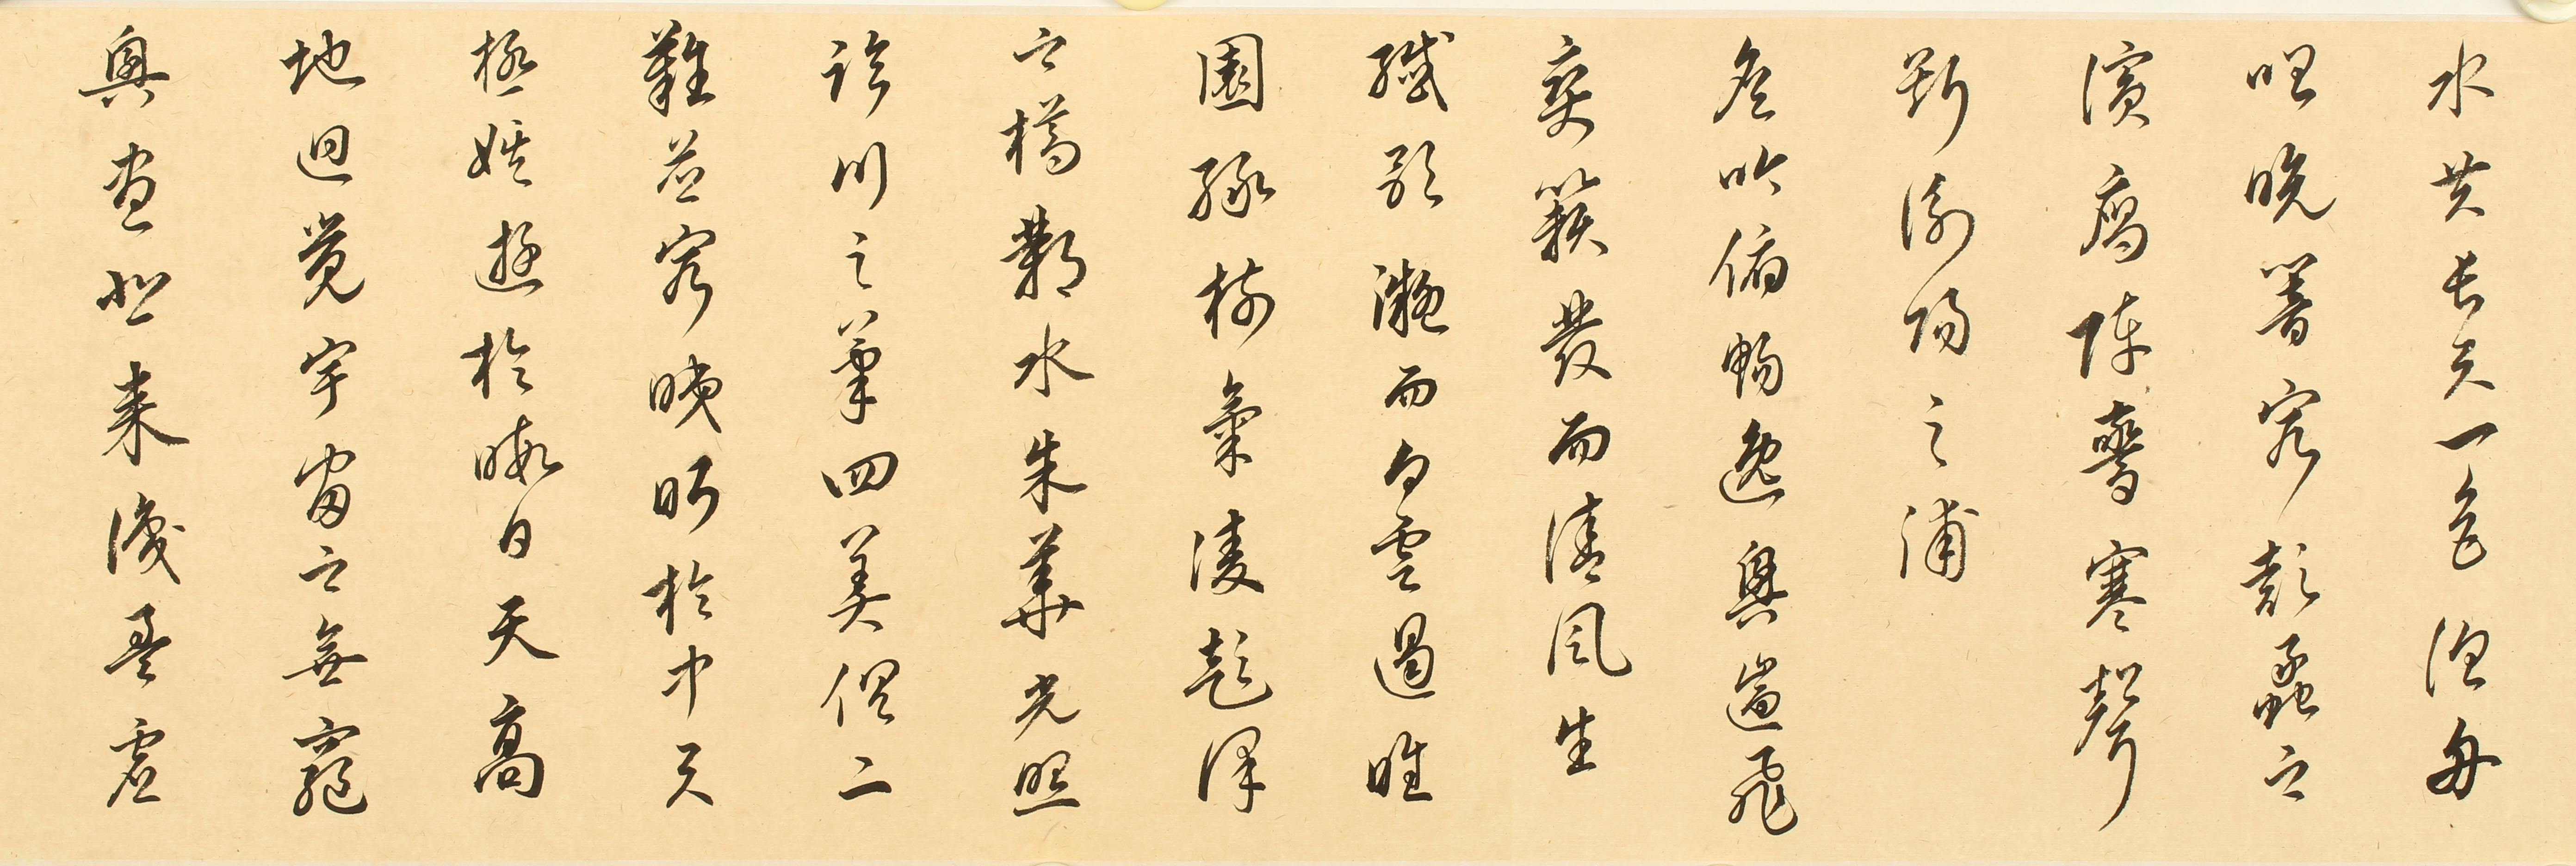 水共長天一色漁舟
唱晚響窮彭蠡之
濱鴈陣驚寒聲
斷衡陽之浦
遙吟俯暢逸興遄飛
爽籟發而清風生
纖歌凝而白雲遏睢
園綠竹氣淩彭澤
之樽鄴水朱華光照
臨川之筆四美俱二
難並窮睇眄於中天
極娛遊於暇日天高
地迥覺宇宙之無窮
興盡悲來識盈虛